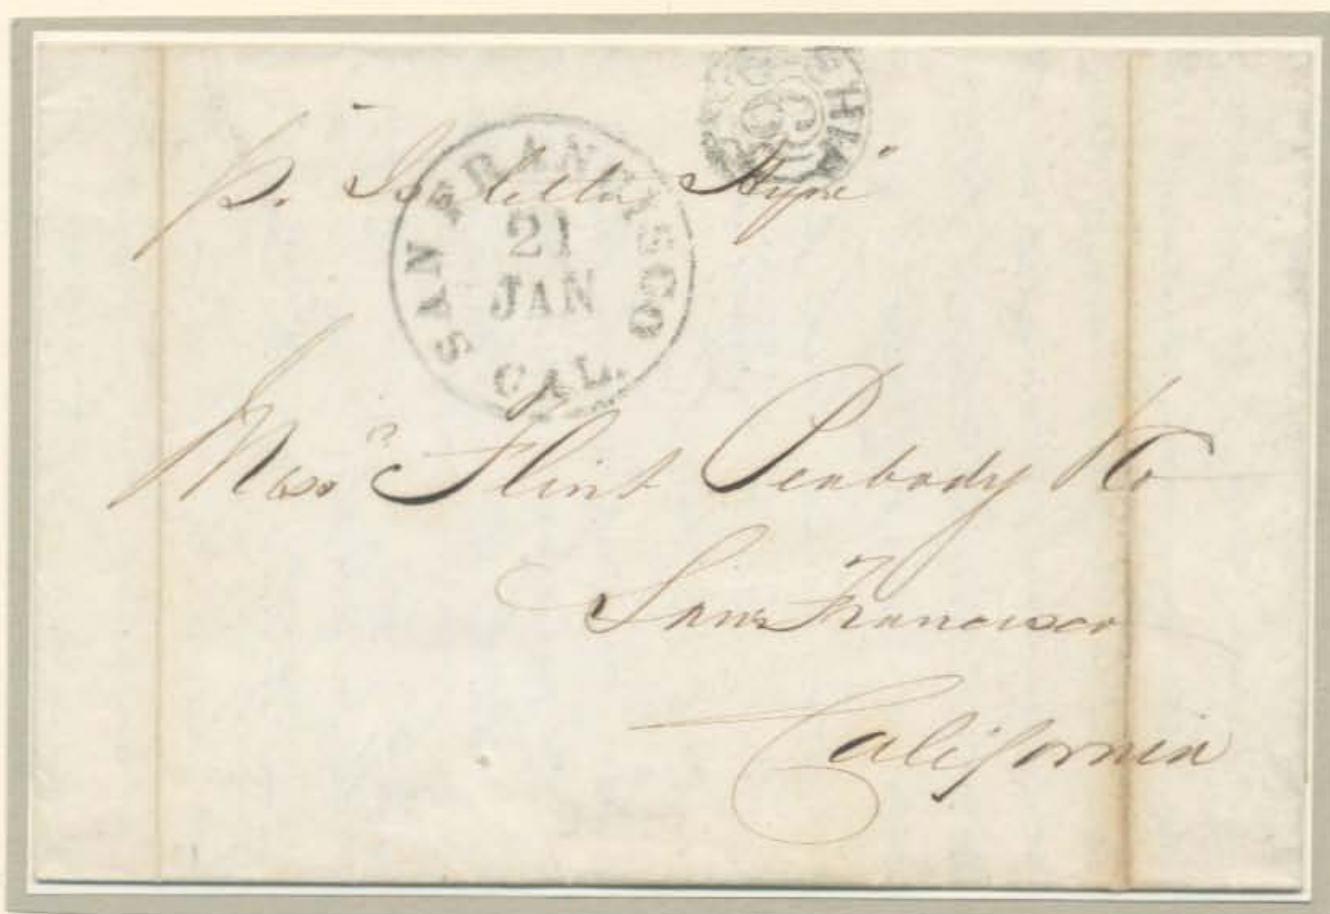 SHIP
6
p. "Isabella Hyne"
SAN FRANCISCO
21
JAN
CAL.
Mess.rs Flint Peabody & Co
San Francisco
California